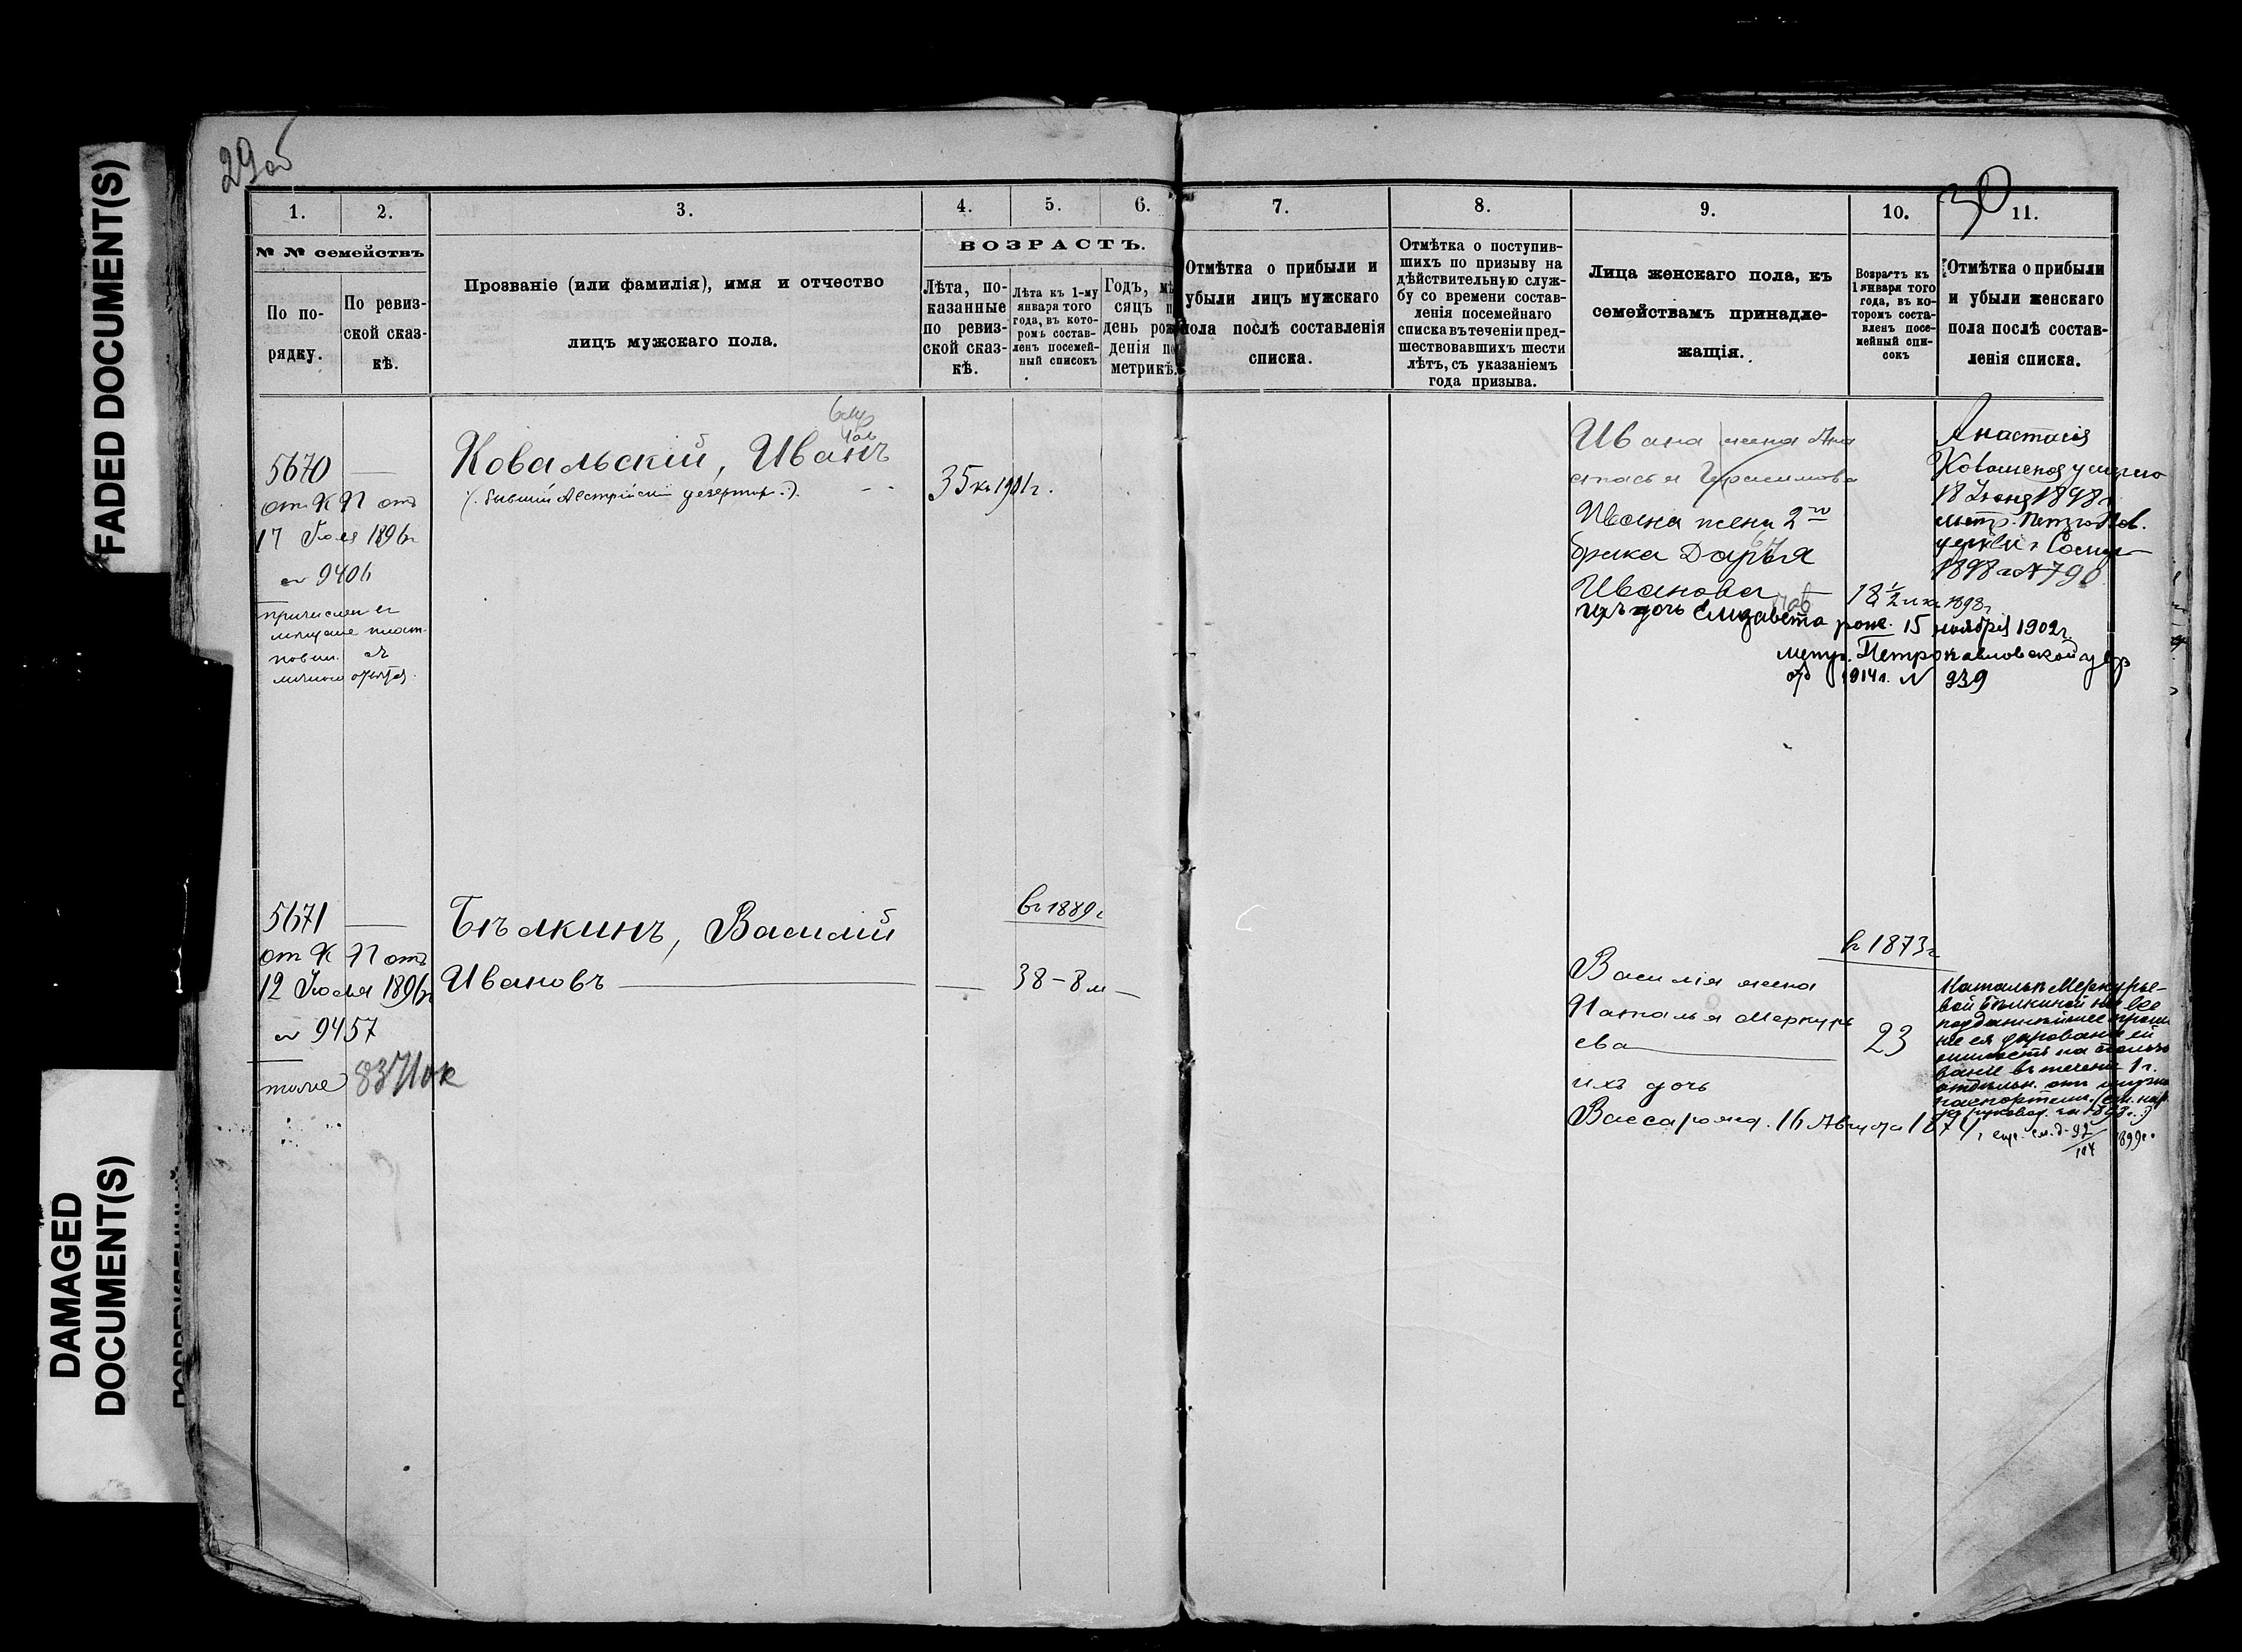 FADED DOCUMENT(S)
DAMAGED
DOCUMENT(S)
29об
30
1.
2.
3.
4.
5.
6.
7.
8.
9.
10.
11.
№ № семействъ
По по-
рядку.
По ревиз-
ской сказ-
кѣ.
Прозваніе (или фамилія), имя и отчество
лицъ мужскаго пола.
ВОЗРАСТЪ.
Лѣта, по-
казанные
по ревиз-
ской сказ-
кѣ.
Лѣта къ 1-му
января того
года, въ кото-
ромъ состав-
ленъ посемей-
ный списокъ
Годъ, мѣ
сяцъ и
день рож
денія по
метрикѣ.
Отмѣтка о прибыли и
убыли лицъ мужскаго
пола послѣ составленія
списка.
Отмѣтка о поступив-
шихъ по призыву на
дѣйствительную служ-
бу со времени состав-
ленія посемейнаго
списка въ теченіи пред-
шествовавшихъ шести
лѣтъ, съ указаніемъ
года призыва.
Лица женскаго пола, къ
семействамъ принадле-
жащія.
Возрастъ къ
1 января того
года, въ ко-
торомъ соста-
вленъ посе-
мейный спи-
сокъ
Отмѣтка о прибыли
и убыли женскаго
пола послѣ состав-
ленія списка.
5670
от К П отъ
17 Іюля 1896г
№ 9406
Ковальскій, Иванъ
(. бывшій Австрійскій дезертир .).
35 къ 1901г.
Ивана жена Ана
стасья Герасимова
Ивана жена 2го
брака Дарья
Иванова
18 1/2 л къ 1898г
ихъ дочь Елизавета рожд. 15 ноября 1902г
метр. Петропавловской цер
1914г. № 339
Анастасія
умерла
18 Іюня 1898г
метр. Петро Пав.
церкви
1898 г № 790
5671
от К П отъ
12 Іюля 1896г
№ 9457
тоже
Бѣлкинъ, Василій
Ивановъ
въ 1889г
38-8 м
Василія жена
Наталья Меркурь
ева
въ 1873г
23
ихъ дочь
Васса рожд. 16 Августа 1874
Натальѣ Меркурье-
вой Бѣлкиной на все
подданнѣйшее проше
ніе ея даровано ей
паспортом